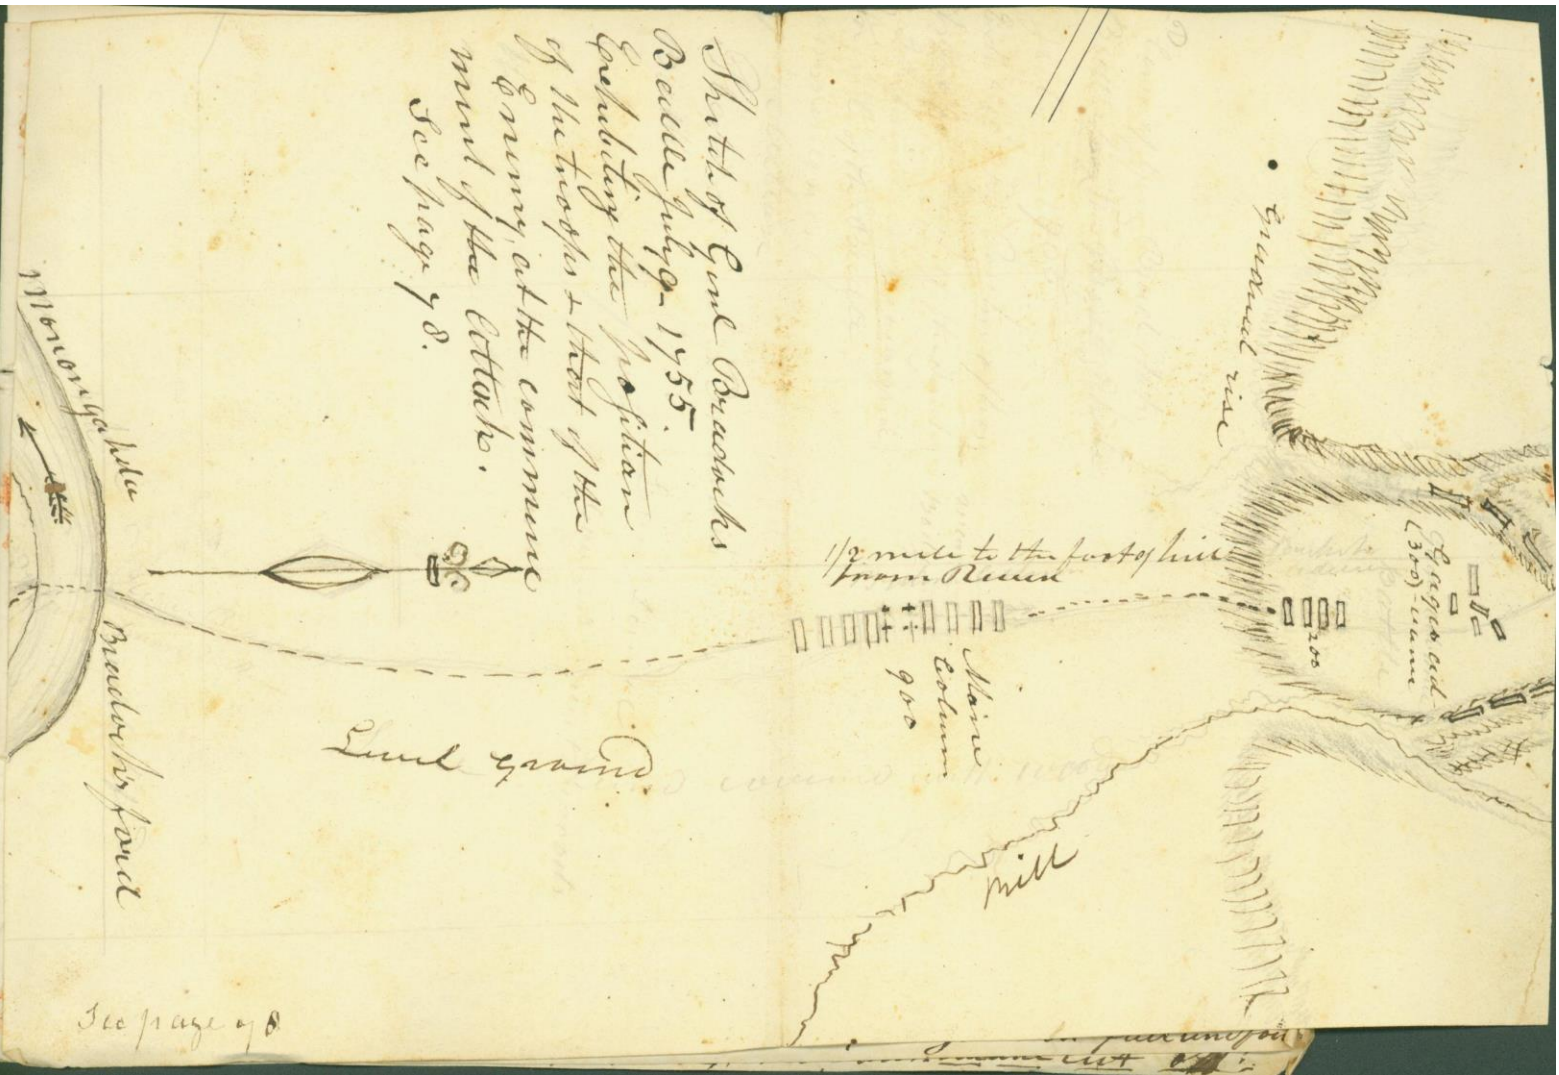 Sketch of Genl Bradocks
Battle July 9- 1755.
Exhibiting the position
of the troops & that of the
Enemy, at the commence
ment of the Attack.
See page 78.
Monongahela
Bradock's ford
Level ground
1/2 mile to the foot of hill
from River
Maine
Column
900
200
Gages ad
(300) - vanc
Gradual rise
Mill
See page 78